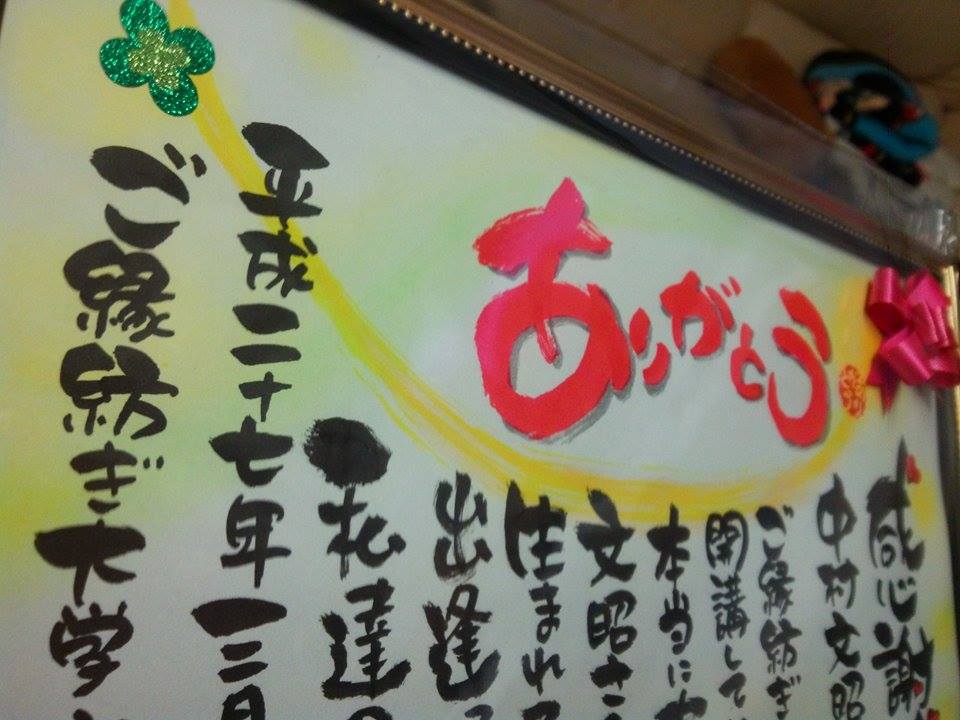 ありがとう
感謝
中村文昭
ご縁紡ぎ
開講して
本当に
文昭さ
生まれて
出逢
私達の
平成二十七年三月
ご縁紡ぎ大学